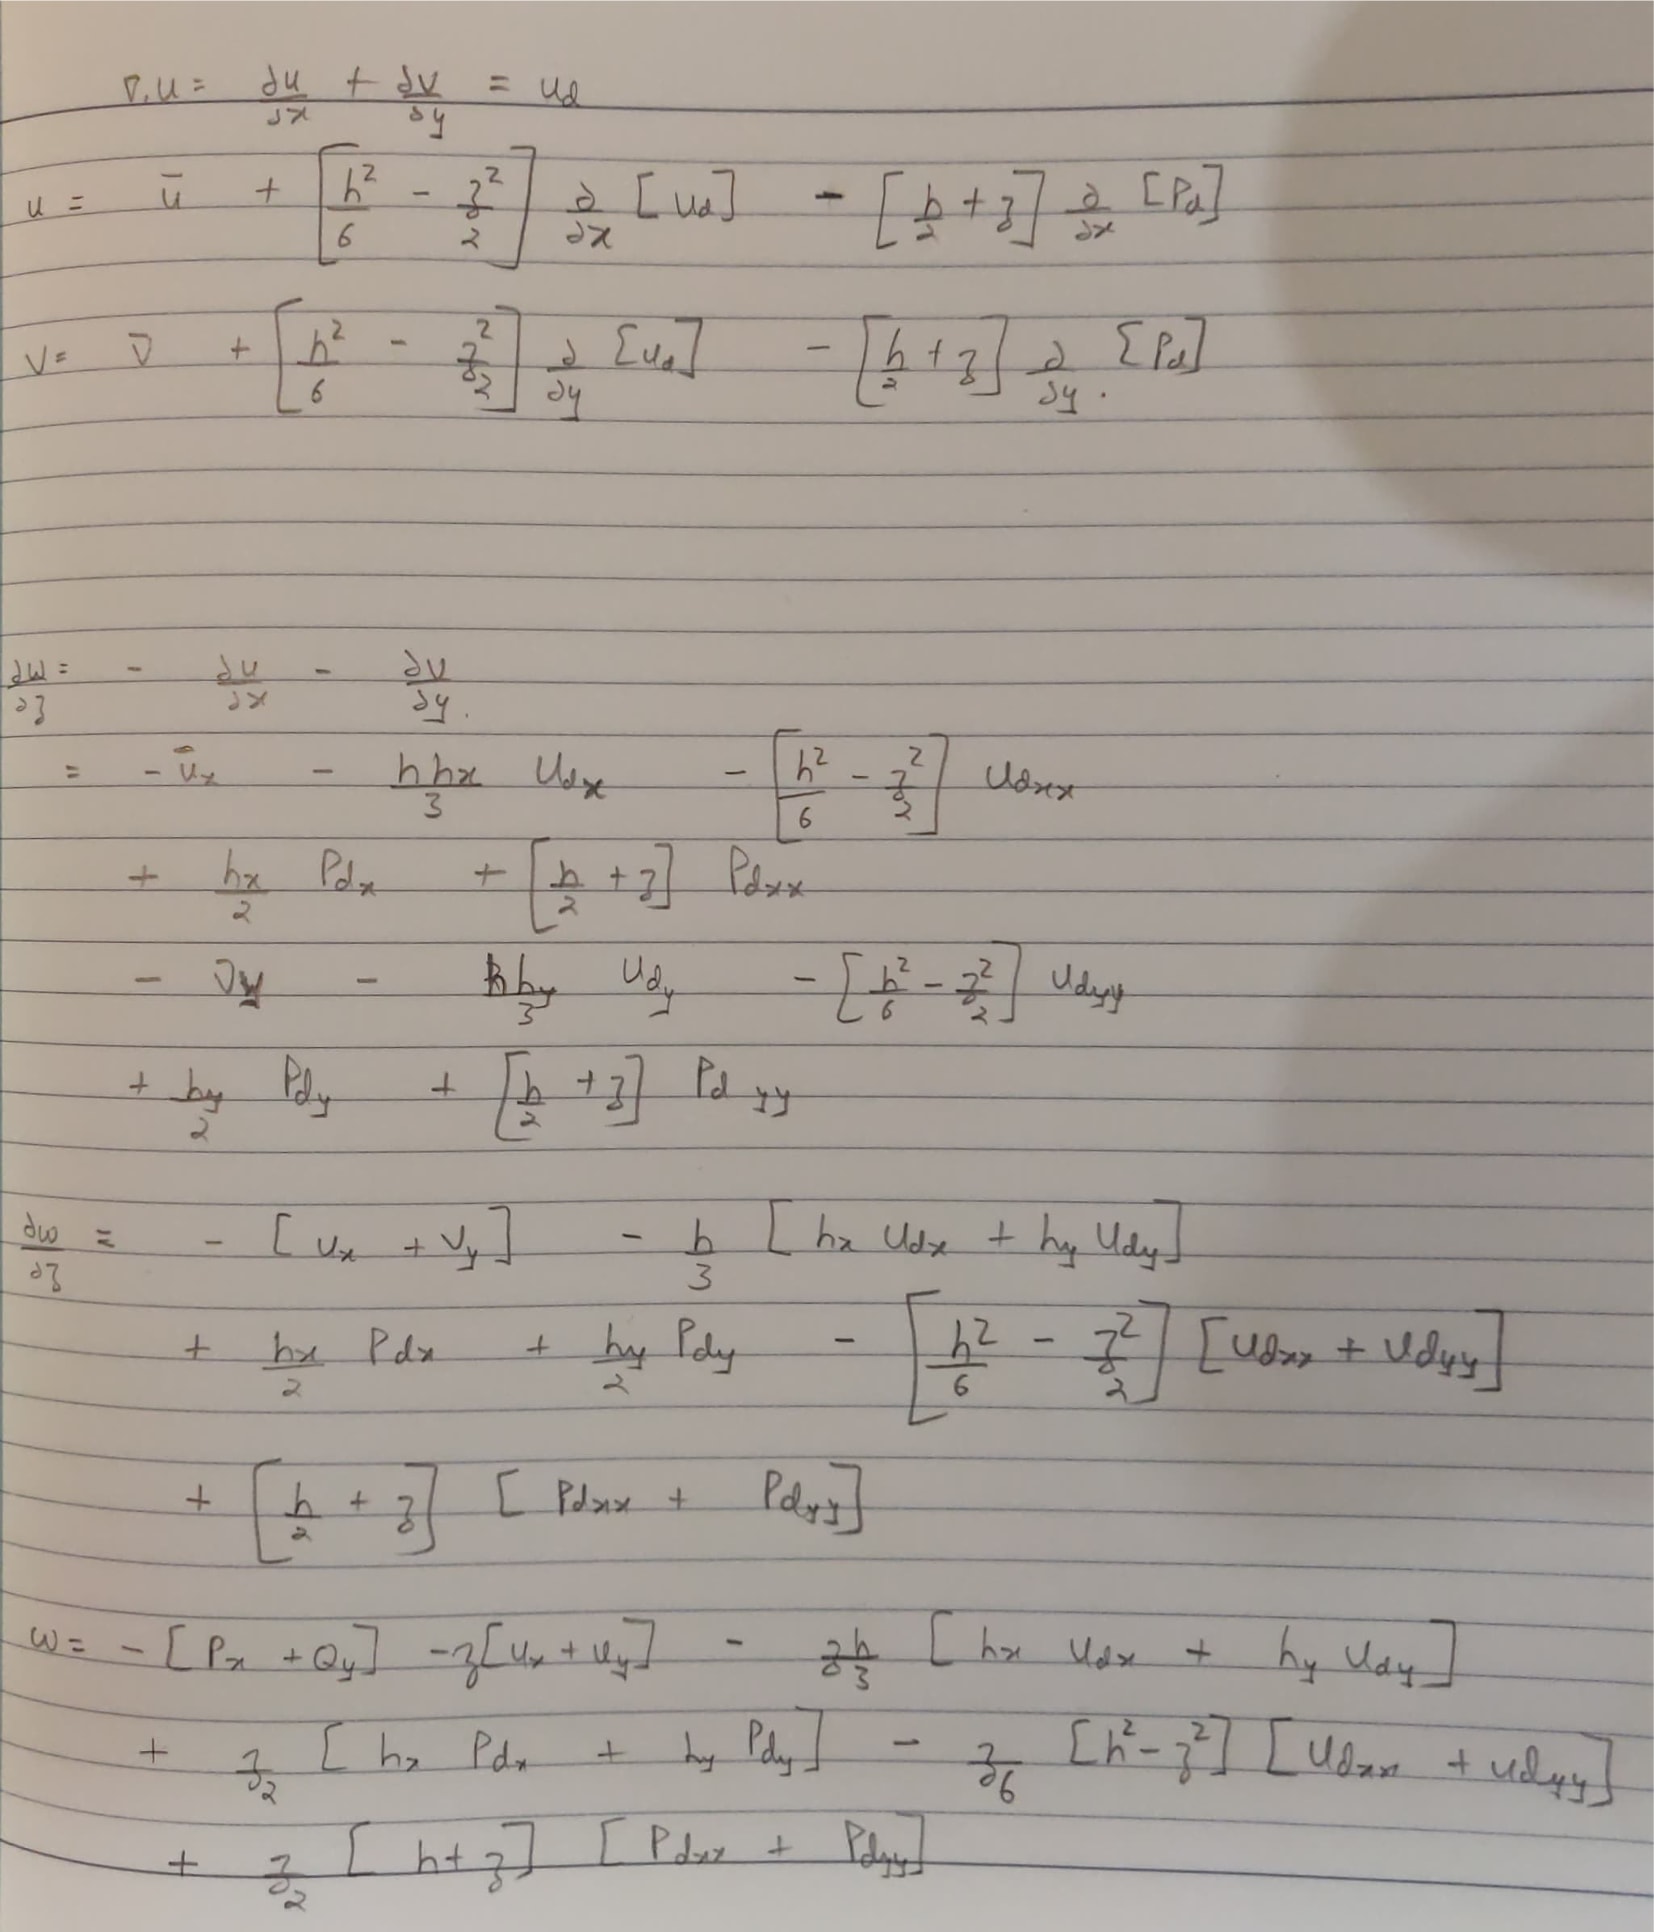 ∇.u = ∂u/∂x + ∂v/∂y = u_d
u = ū + [h²/6 - z²/2] ∂/∂x [u_d] - [h/2 + z] ∂/∂x [P_d]
v = v̄ + [h²/6 - z²/2] ∂/∂y [u_d] - [h/2 + z] ∂/∂y . [P_d]
∂w/∂z = - ∂u/∂x - ∂v/∂y .
= - ū_x - h h_x/3 u_dx - [h²/6 - z²/2] u_dxx
+ h_x/2 P_dx + [h/2 + z] P_dxx
- v̄_y - h h_y/3 u_dy - [h²/6 - z²/2] u_dyy
+ h_y/2 P_dy + [h/2 + z] P_dyy
∂w/∂z = - [u_x + v_y] - h/3 [h_x u_dx + h_y u_dy]
+ h_x/2 P_dx + h_y/2 P_dy - [h²/6 - z²/2] [u_dxx + u_dyy]
+ [h/2 + z] [P_dxx + P_dyy]
w = - [P_x + Q_y] - z[u_x + u_y] - zh/3 [h_x u_dx + h_y u_dy]
+ z/2 [h_x P_dx + h_y P_dy] - z/6 [h² - z²] [u_dxx + u_dyy]
+ z/2 [h + z] [P_dxx + P_dyy]